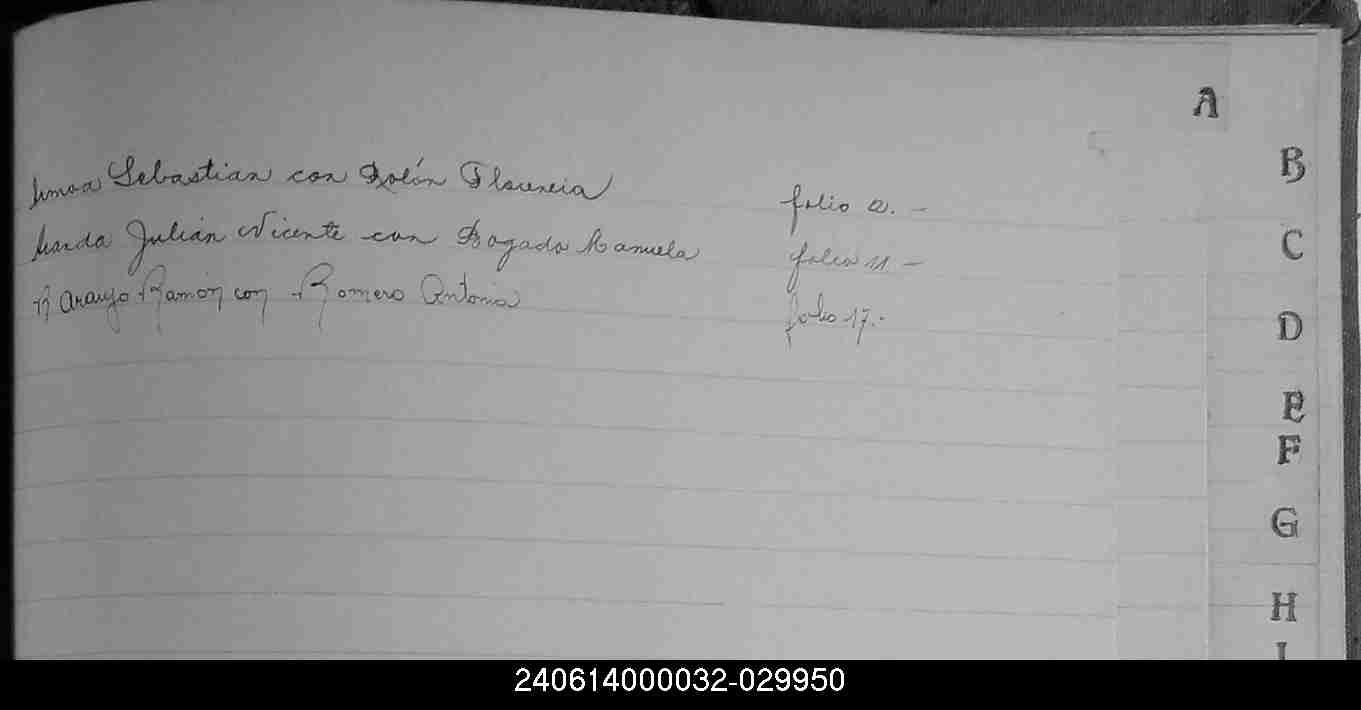 Sebastian con Rolón Florencia folio 2. -
Julián Vicente con Bogado Manuela folio 11 -
Araujo Ramón con Romero Antonia folio 17.-
A
B
C
D
E
F
G
H
I
240614000032-029950